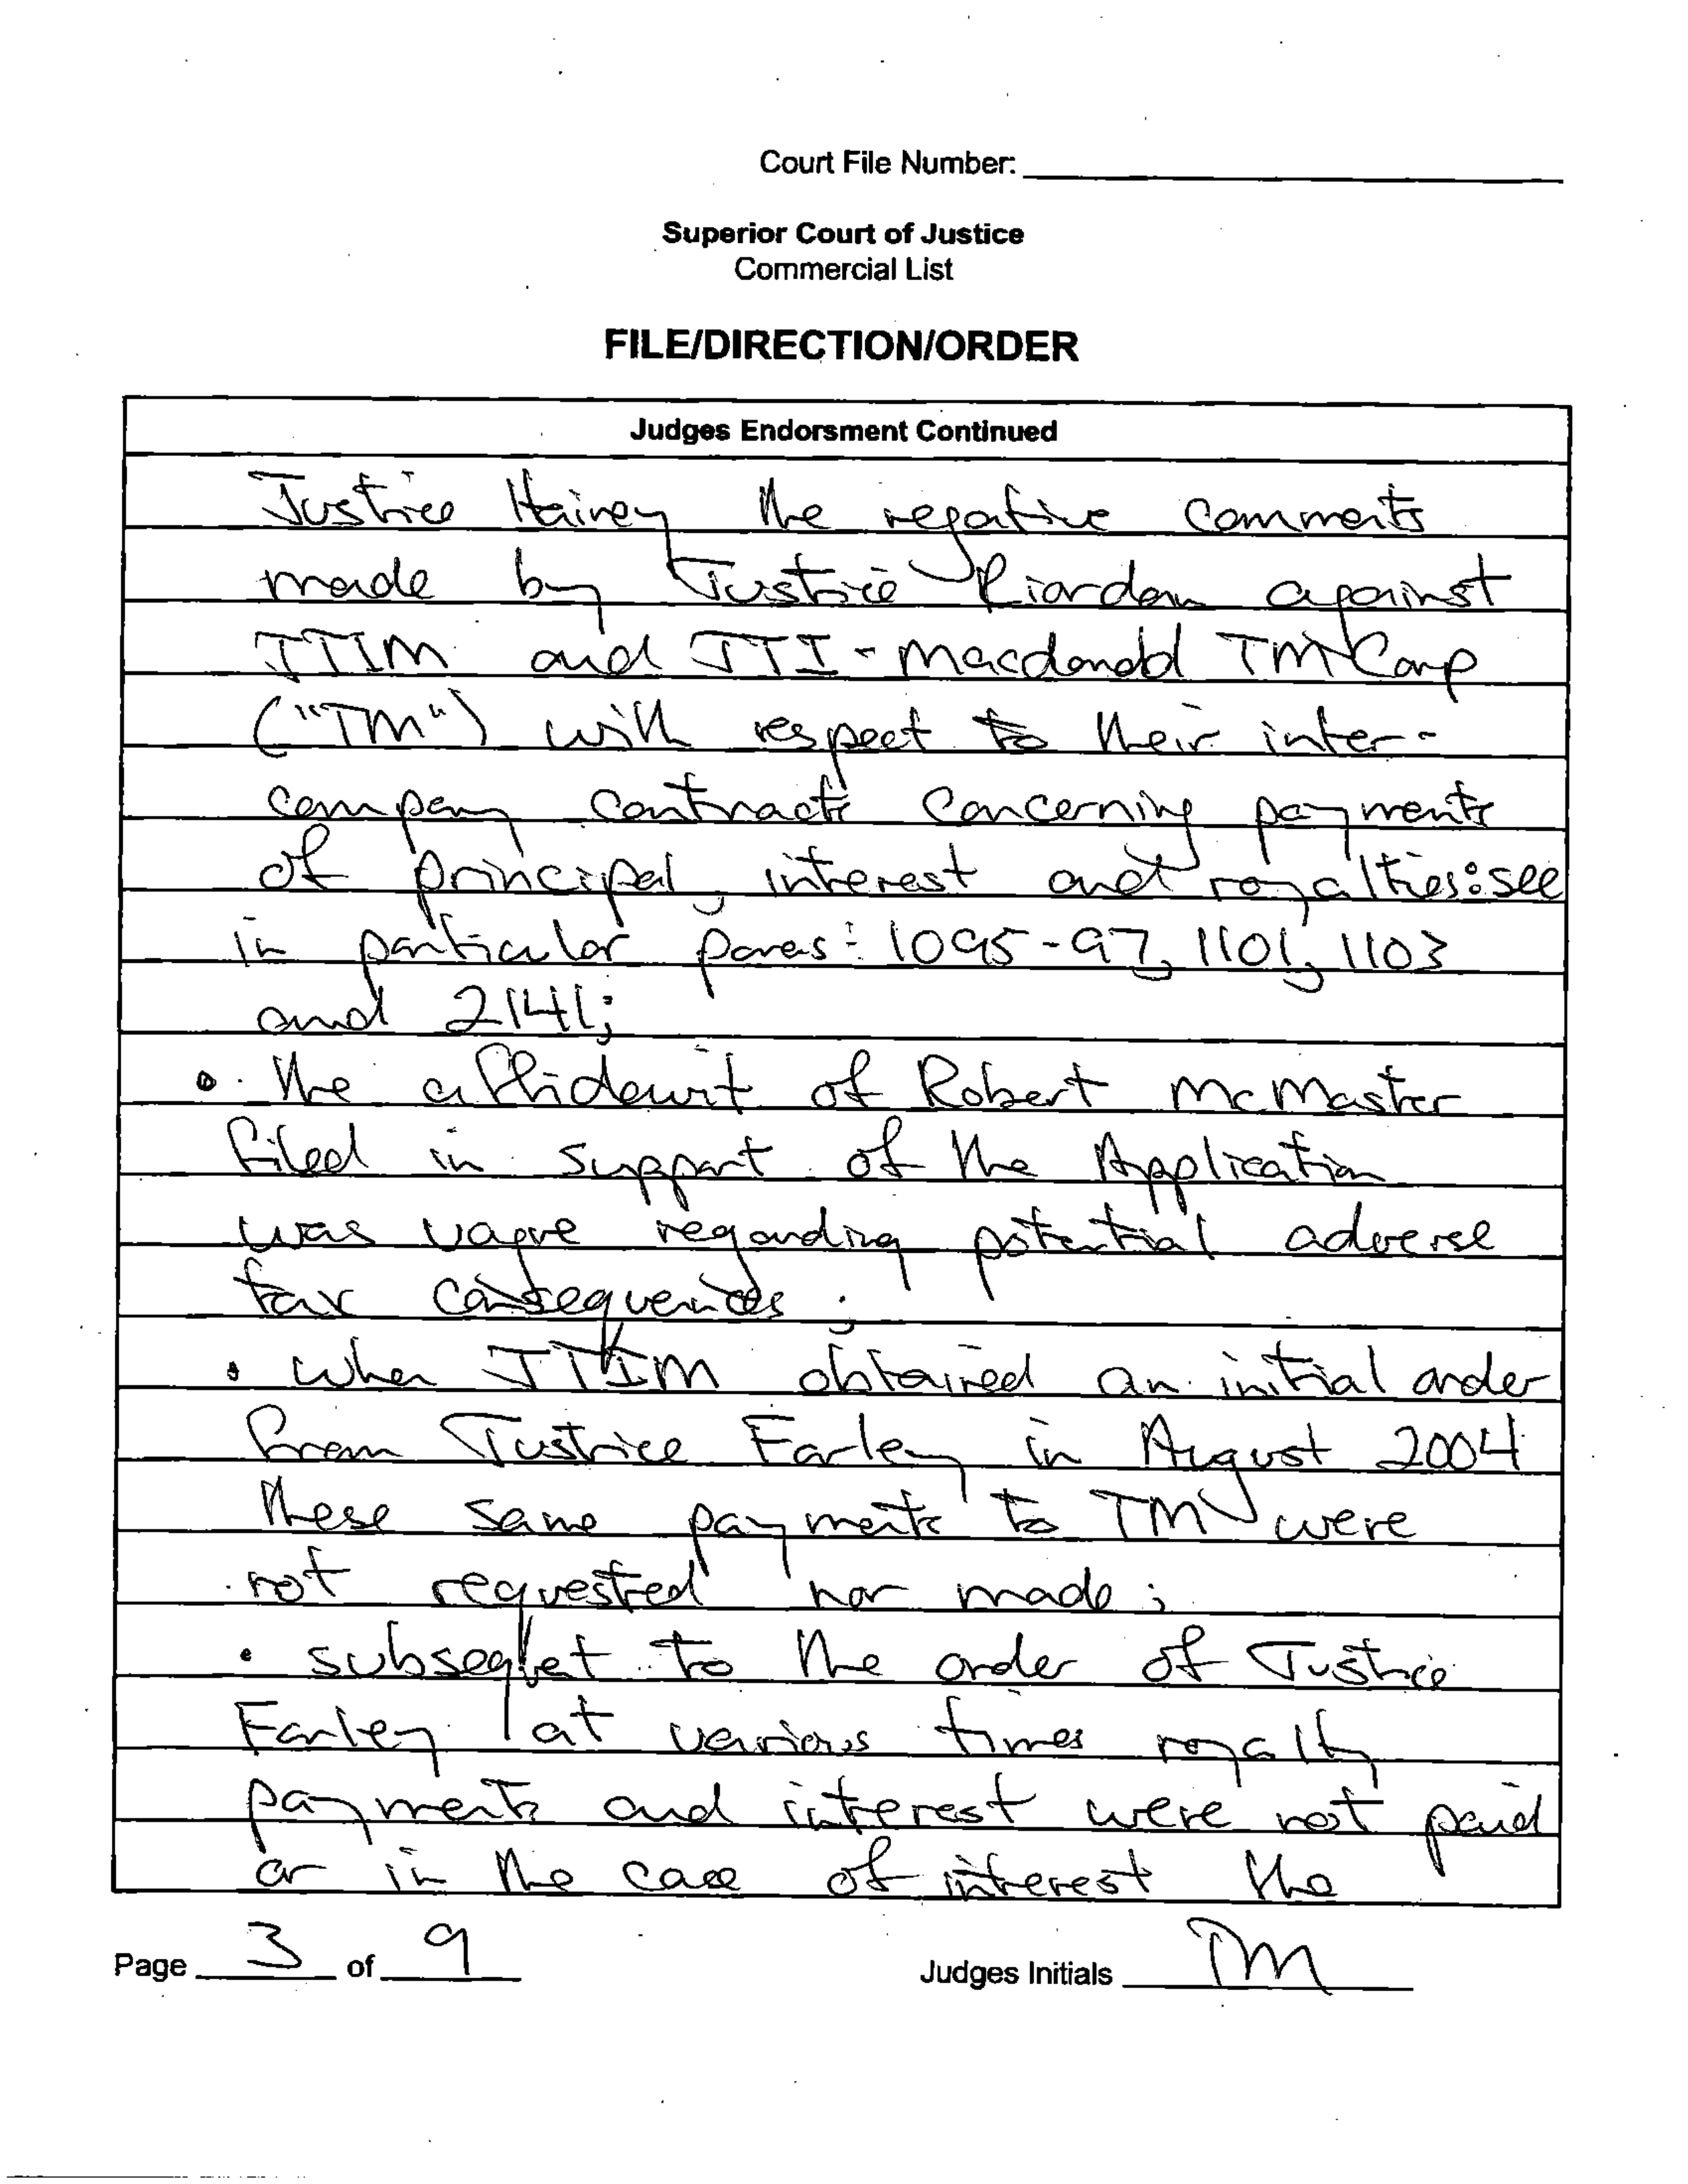 Court File Number:
Superior Court of Justice
Commercial List
FILE/DIRECTION/ORDER
Judges Endorsment Continued
Justice Hainey the negative comments
made by Justice Riordan against
JTIM and JTI-Macdonald TM Corp
("TM") with respect to their inter-
company contracts concerning payments
of principal, interest and royalties: see
in particular paras: 1095-97, 1101, 1103
and 2141;
• the affidavit of Robert McMaster
filed in support of the Application
was vague regarding potential adverse
tax consequences;
• when JTIM obtained an initial order
from Justice Farley in August 2004
these same payments to TM were
not requested nor made;
• subsequet to the order of Justice
Farley at various times royalty
payments and interest were not paid
or in the case of interest the
Page 3 of 9
Judges Initials TM